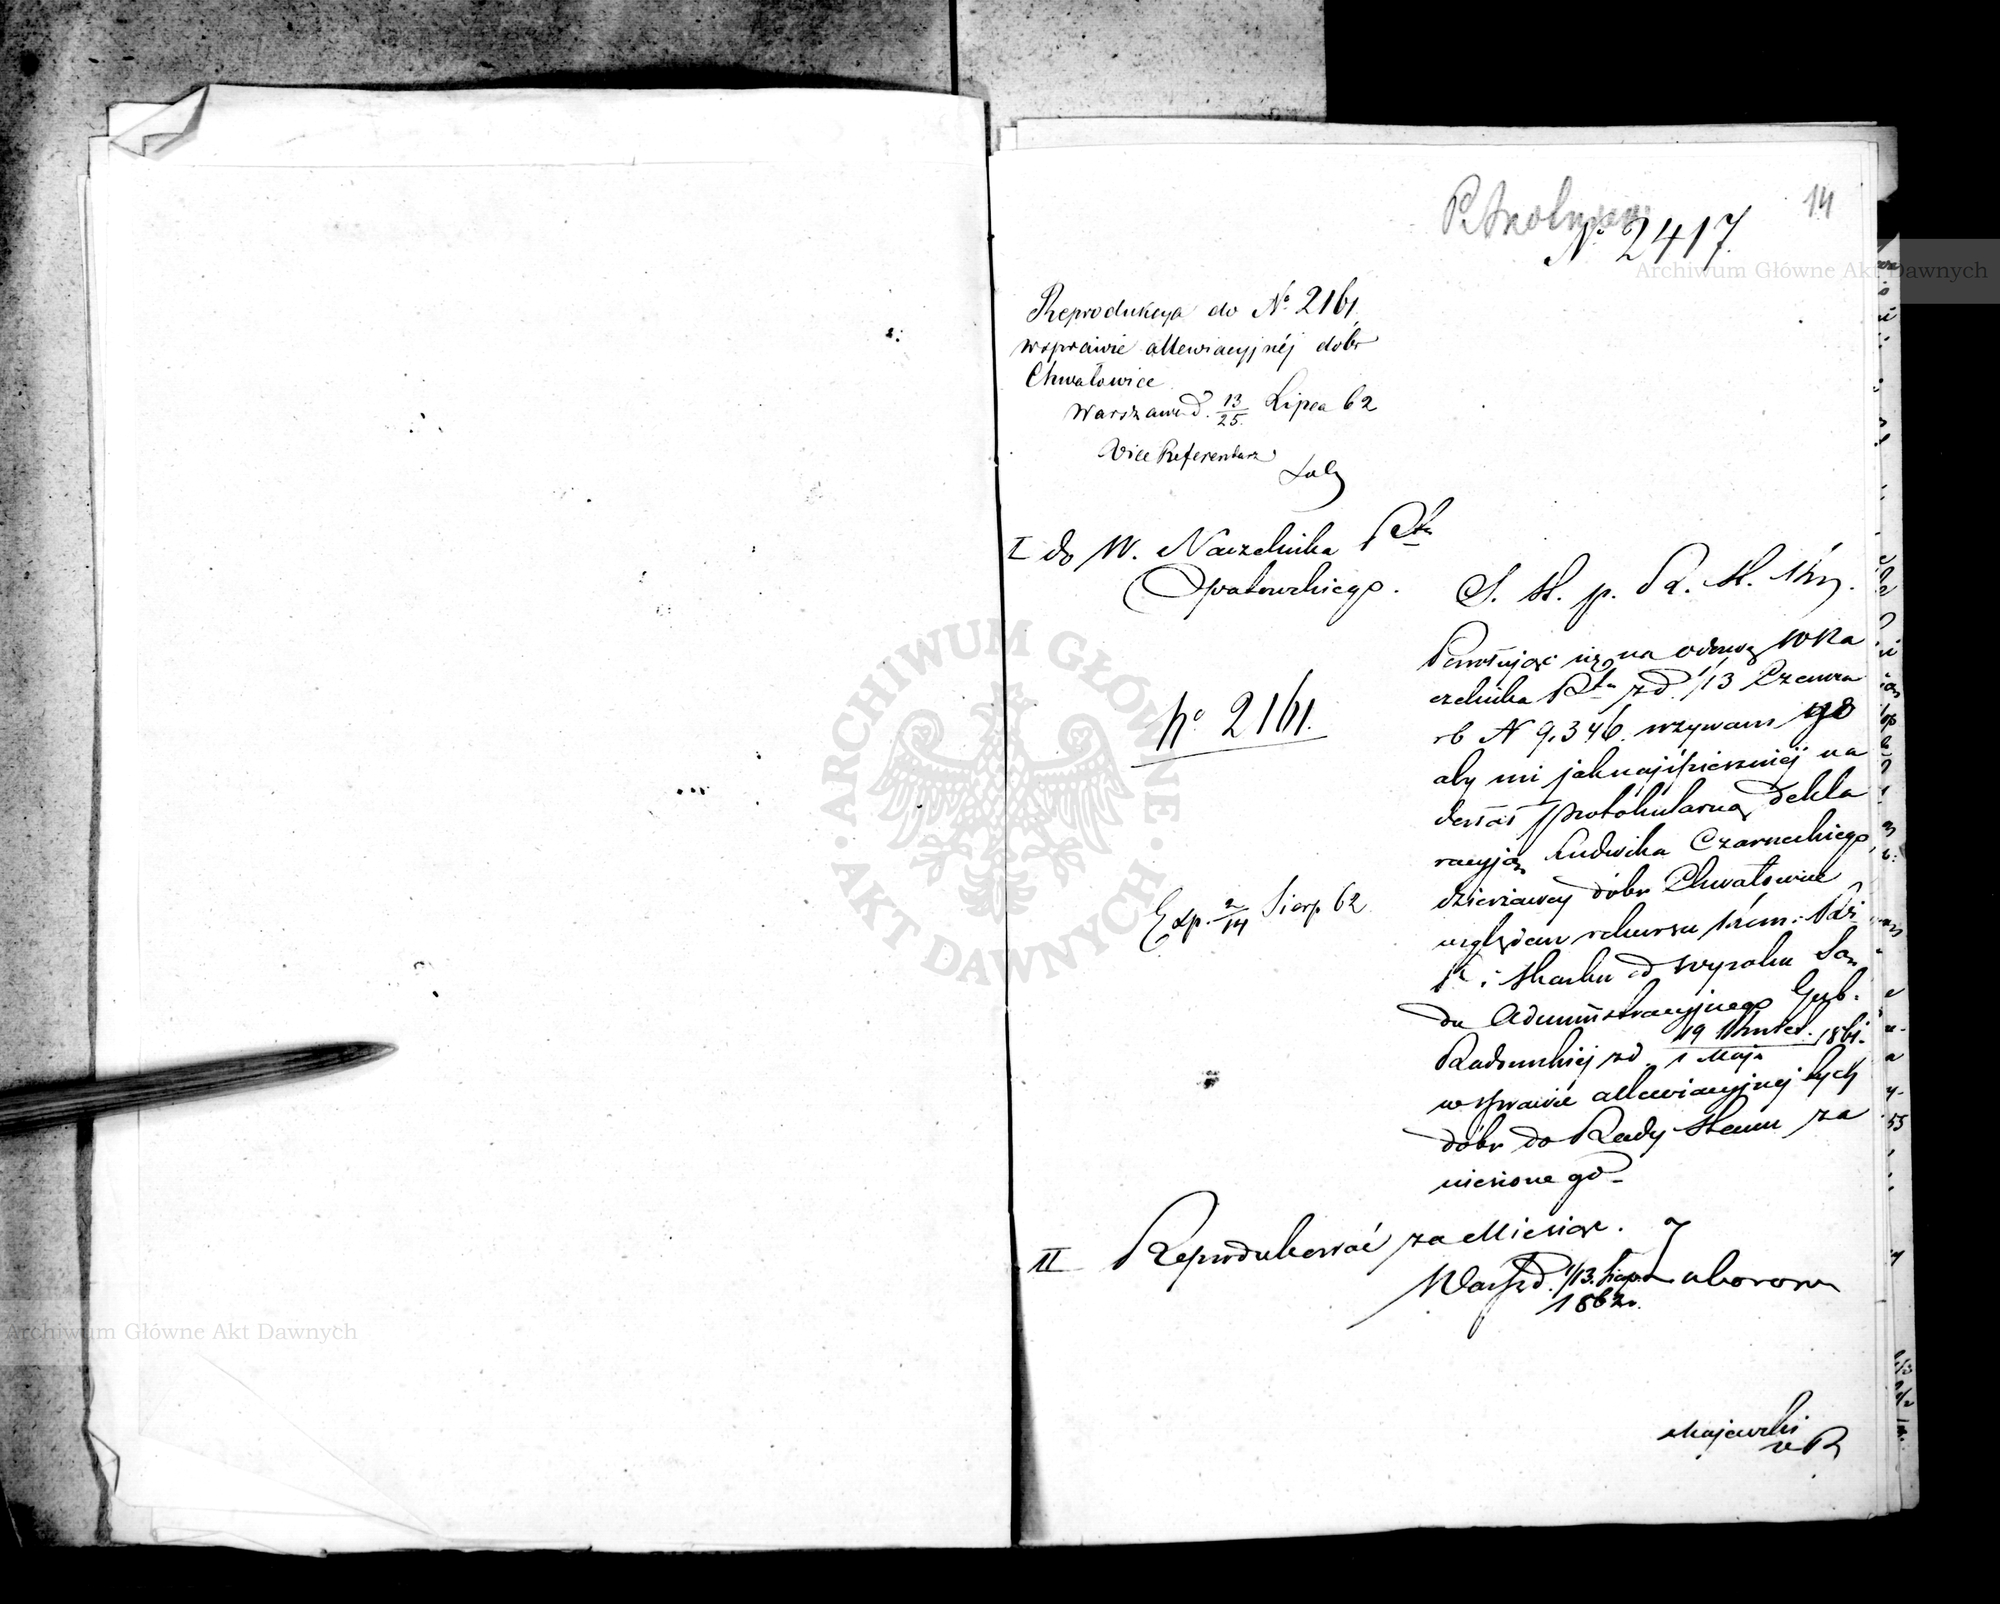 14
No 2417
Reprodukcya do No 2161
wsprawie allewiacyjnéj dóbr
Chwałowice
Warszawa d. 13/25 Lipca 62
Vice Referendarz
I do W. Naczelnika Ptu
Opatowskiego.
No 2161.
Exp. 2/14 Sierp 62
Powołując się na odezwę WNa
czelnika Ptu z d. 1/13 Czerwca
rb N 9,346. wzywam go
aby mi jaknajśpieszniej na
desłał protokularną dekla
racyją Ludwika Czarneckiego
dzierżawcy dóbr Chwałowice
względem rekursu
i Skarbu od wyroku Są
du Administracyjnego Gub.
Radomskiej z d. 19 Kwiet./1 Maja 1861.
w sprawie allewiacyjnej tych
dóbr do Rady Stanu za
niesionego
II Reprodukować za Miesiąc.
Warsz d. 1/13. Sierp.
1862 r.
Majewski
Archiwum Główne Akt Dawnych
ARCHIWUM GŁÓWNE AKT DAWNYCH
Archiwum Główne Akt Dawnych